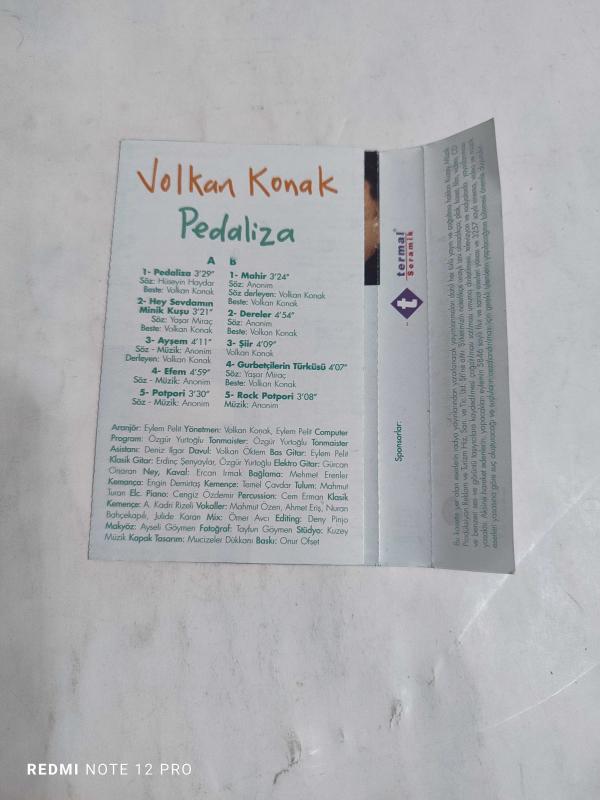 Volkan Konak
Pedaliza
A
1- Pedaliza 3'29"
Söz: Hüseyin Haydar
Beste: Volkan Konak
2- Hey Sevdamın
Minik Kuşu 3'21"
Söz: Yaşar Miraç
Beste: Volkan Konak
3- Ayşem 4'11"
Söz - Müzik: Anonim
Derleyen: Volkan Konak
4- Efem 4'59"
Söz - Müzik: Anonim
5- Potpori 3'30"
Söz - Müzik: Anonim
B
1- Mahir 3'24"
Söz: Anonim
Söz derleyen: Volkan Konak
Beste: Volkan Konak
2- Dereler 4'54"
Söz: Anonim
Beste: Volkan Konak
3- Şiir 4'09"
Volkan Konak
4- Gurbetçilerin Türküsü 4'07"
Söz: Yaşar Miraç
Beste: Volkan Konak
5- Rock Potpori 3'08"
Müzik: Anonim
Aranjör: Eylem Pelit Yönetmen: Volkan Konak, Eylem Pelit Computer
Program: Özgür Yurtoğlu Tonmaister: Özgür Yurtoğlu Tonmaister
Asistanı: Deniz Ilgar Davul: Volkan Öktem Bas Gitar: Eylem Pelit
Klasik Gitar: Erdinç Şenyaylar, Özgür Yurtoğlu Elektro Gitar: Gürcan
Onaran Ney, Kaval: Ercan Irmak Bağlama: Mehmet Erenler
Kemança: Engin Demirtaş Kemençe: Temel Çavdar Tulum: Mahmut
Turan Elc. Piano: Cengiz Özdemir Percussion: Cem Erman Klasik
Kemençe: A. Kadri Rizeli Vokaller: Mahmut Özen, Ahmet Eriş, Nuran
Bahçekapılı, Julide Karan Mix: Ömer Avcı Editing: Deny Pinjo
Makyöz: Ayseli Göymen Fotoğraf: Tayfun Göymen Stüdyo: Kuzey
Müzik Kapak Tasarım: Mucizeler Dükkanı Baskı: Onur Ofset
Sponsorlar:
t
termal
Seramik
REDMI NOTE 12 PRO